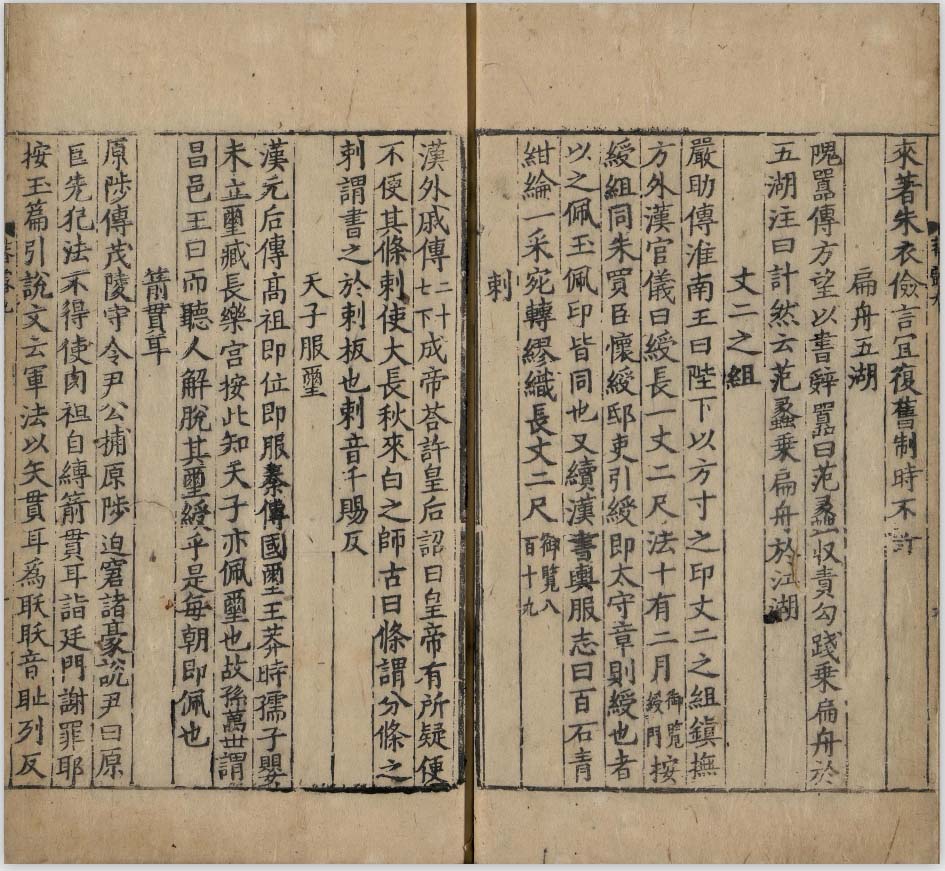 來著朱衣儉言宜復舊制時不許
扁舟五湖
隗囂傳方望以書辭囂曰范蠡收責勾踐乗扁舟於
五湖注曰計然云范蠡乗扁舟於江湖
丈二之組
嚴助傳淮南王曰陛下以方寸之印丈二之組鎮撫
方外漢官儀曰綬長一丈二尺法十有二月御覧綬門按
綬組同朱買臣懷綬邸吏引綬即太守章則綬也者
以之佩玉佩印皆同也又續漢書輿服志曰百石青
紺綸一采宛轉繆織長丈二尺御覧八百十九
刺
漢外戚傳二十七下成帝荅許皇后詔曰皇帝有所疑便
不便其條刺使大長秋來白之師古曰條謂分條之
刺謂書之於刺板也刺音千賜反
天子服璽
漢元后傳髙祖即位即服秦傳國璽王莽時孺子嬰
未立璽臧長樂宫按此知天子亦佩璽也故孫萬世謂
昌邑王曰而聽人解脫其璽綬乎是每朝即佩也
箭貫耳
原陟傳茂陵守令尹公捕原陟迫窘諸豪說尹曰原
巨先犯法不得使肉袒自縛箭貫耳詣廷門謝罪耶
按玉篇引說文云軍法以矢貫耳爲聅聅音耻列反